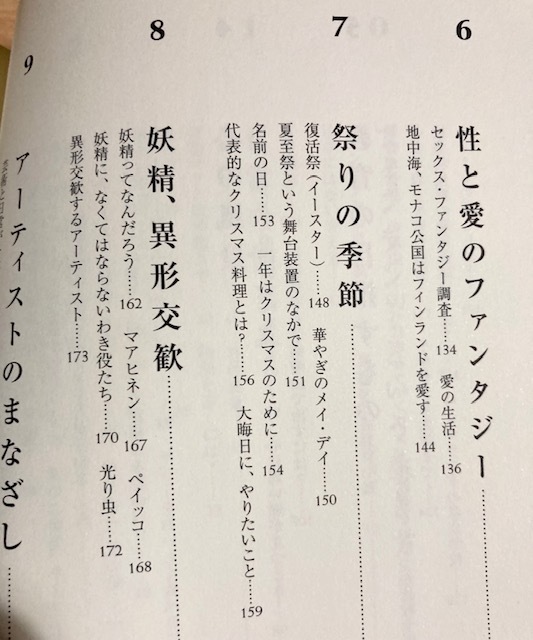 6
性と愛のファンタジー……………
セックス・ファンタジー調査……134　愛の生活……136
地中海、モナコ公国はフィンランドを愛す……144
7
祭りの季節……………
復活祭（イースター）……148　華やぎのメイ・デイ……150
夏至祭という舞台装置のなかで……151
名前の日……153　一年はクリスマスのために……154
代表的なクリスマス料理とは？……156　大晦日に、やりたいこと……159
8
妖精、異形交歓……………
妖精ってなんだろう……162　マアヒネン……167　ペイッコ……168
妖精に、なくてはならないわき役たち……170　光り虫……172
異形交歓するアーティスト……173
9
アーティストのまなざし……